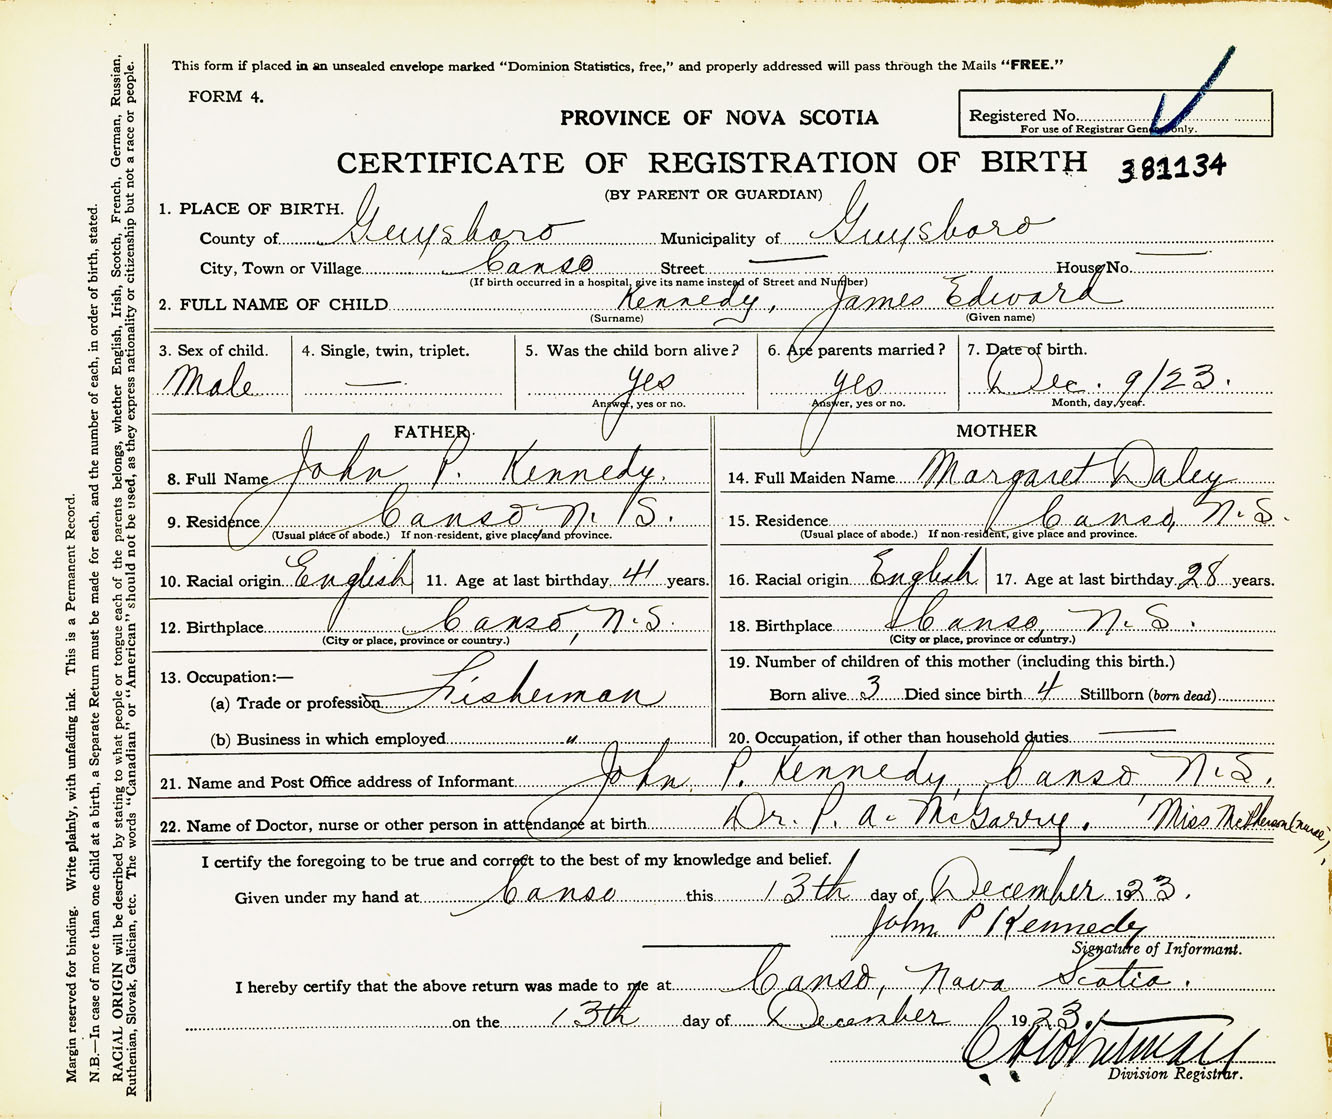 This form if placed in an unsealed envelope marked "Dominion Statistics, free," and properly addressed will pass through the Mails "FREE."
FORM 4.
PROVINCE OF NOVA SCOTIA
Registered No.
For use of Registrar General only.
CERTIFICATE OF REGISTRATION OF BIRTH 381134
(BY PARENT OR GUARDIAN)
1. PLACE OF BIRTH.
County of Guysboro Municipality of Guysboro
City, Town or Village Canso Street — House No. —
(If birth occurred in a hospital, give its name instead of Street and Number)
2. FULL NAME OF CHILD Kennedy, James Edward
(Surname) (Given name)
3. Sex of child. 4. Single, twin, triplet. 5. Was the child born alive? 6. Are parents married? 7. Date of birth.
Male — yes yes Dec. 9/23.
Answer, yes or no. Answer, yes or no. Month, day, year.
FATHER. MOTHER
8. Full Name John P. Kennedy. 14. Full Maiden Name Margaret Daley
9. Residence Canso, N. S. 15. Residence Canso, N. S.
(Usual place of abode.) If non-resident, give place and province. (Usual place of abode.) If non-resident, give place and province.
10. Racial origin English 11. Age at last birthday 41 years. 16. Racial origin English 17. Age at last birthday 28 years.
12. Birthplace Canso, N. S. 18. Birthplace Canso, N. S.
(City or place, province or country.) (City or place, province or country.)
13. Occupation:— 19. Number of children of this mother (including this birth.)
(a) Trade or profession Fisherman Born alive 3 Died since birth 4 Stillborn (born dead)
(b) Business in which employed " 20. Occupation, if other than household duties —
21. Name and Post Office address of Informant John P. Kennedy, Canso, N. S.
22. Name of Doctor, nurse or other person in attendance at birth Dr. P. A. McGarry. Miss McPherson (nurse),
I certify the foregoing to be true and correct to the best of my knowledge and belief.
Given under my hand at Canso this 13th day of December 1923.
John P Kennedy
Signature of Informant.
I hereby certify that the above return was made to me at Canso, Nova Scotia.
on the 13th day of December 1923.
Division Registrar.
Margin reserved for binding. Write plainly, with unfading ink. This is a Permanent Record.
N.B.—In case of more than one child at a birth, a Separate Return must be made for each, and the number of each, in order of birth, stated.
RACIAL ORIGIN will be described by stating to what people or tongue each of the parents belongs, whether English, Irish, Scotch, French, German, Russian,
Ruthenian, Slovak, Galician, etc. The words "Canadian" or "American" should not be used, as they express nationality or citizenship but not a race or people.